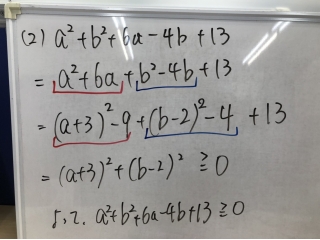 (2) a²+b²+6a-4b+13
= a²+6a+b²-4b+13
= (a+3)²-9+(b-2)²-4 +13
= (a+3)²+(b-2)² ≧0
よって、a²+b²+6a-4b+13≧0